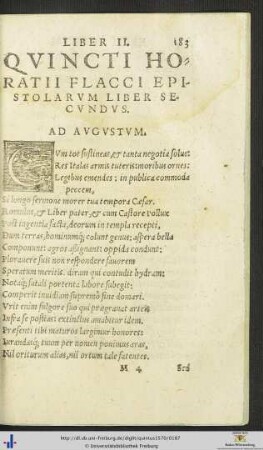 LIBER II. 183
QVINCTI HO-
RATII FLACCI EPI-
STOLARVM LIBER SE-
CVNDVS.
AD AVGVSTVM.
CVm tot sustineas, & tanta negotia solus:
Res Italas armis tuteris: moribus ornes:
Legibus emendes: in publica commoda
peccem,
Si longo sermone morer tua tempora Cæsar.
Romulus, & Liber pater, & cum Castore Pollux
Post ingentia facta, deorum in templa recepti,
Dum terras, hominumq; colunt genus; aspera bella
Componunt: agros assignant: oppida condunt;
Plorauere suis non respondere fauorem
Speratum meritis. diram qui contudit hydram;
Notaq; fatali portenta labore subegit;
Comperit inuidiam supremo fine domari.
Vrit enim fulgore suo qui prægrauat artes
Infra se positas: extinctus amabitur idem.
Præsenti tibi maturos largimur honores:
Iurandasq; tuum per nomen ponimus aras,
Nil oriturum alias, nil ortum tale fatentes.
M 4 Sed
http://dl.ub.uni-freiburg.de/diglit/quintus1570/0187
© Universitätsbibliothek Freiburg
Baden-Württemberg